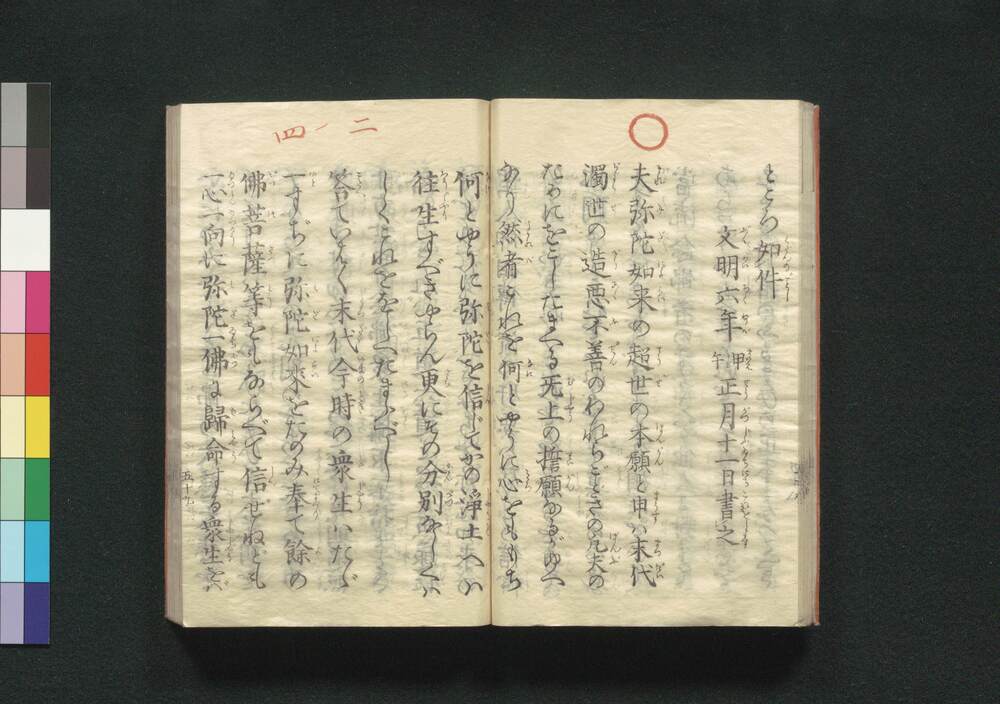 ところ如件
文明六年甲午正月十一日書之
夫弥陀如来の超世の本願と申は末代
濁世の造悪不善のわれらごときの凡夫の
ためにをこしたまへる无上の誓願なるがゆへ
なり然者これを何とやうに心をももち
二ノ四
何とやうに弥陀を信じてかの浄土へは
往生すべきやらん更にその分別なしくは
しくこれををしへたまふべし
答ていはく末代今時の衆生はたゞ
一すぢに弥陀如來をたのみ奉て餘の
佛菩薩等をもならべて信ぜねども
一心一向に弥陀一佛に歸命する衆生をば
五十九